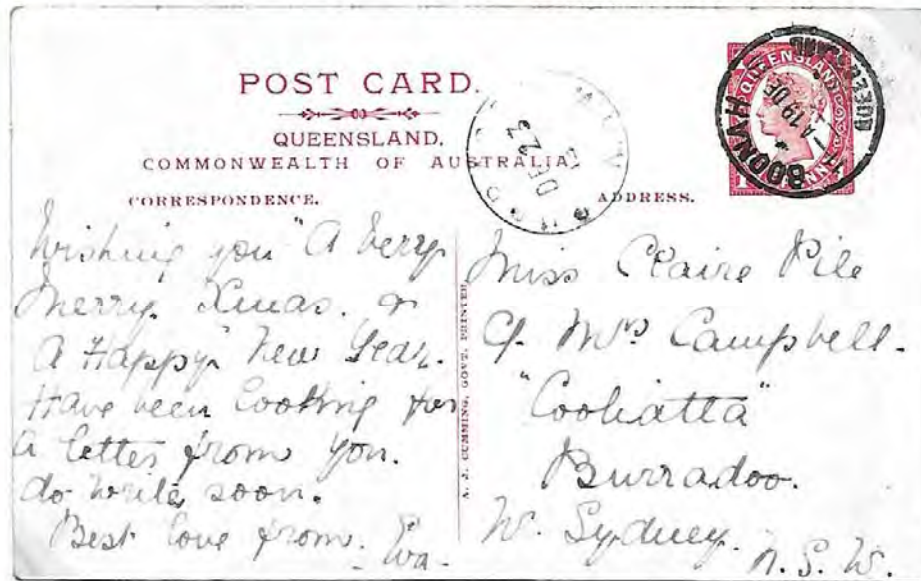 POST CARD.
QUEENSLAND.
COMMONWEALTH OF AUSTRALIA
CORRESPONDENCE.
ADDRESS.
QUEENSLAND
PENNY
BOONAH
QUEENSLAND
A 19 DE
11
DE 23
Wishing you "A Very
Merry Xmas. &
A Happy" New Year.
Have been looking for
a letter from you.
do write soon.
Best love from.
Eva.
A. J. CUMMING, GOVT. PRINTER
Miss Claire Pile
C/. Mrs Campbell.
"Coobatta"
Burradoo.
N. Sydney.
N. S. W.